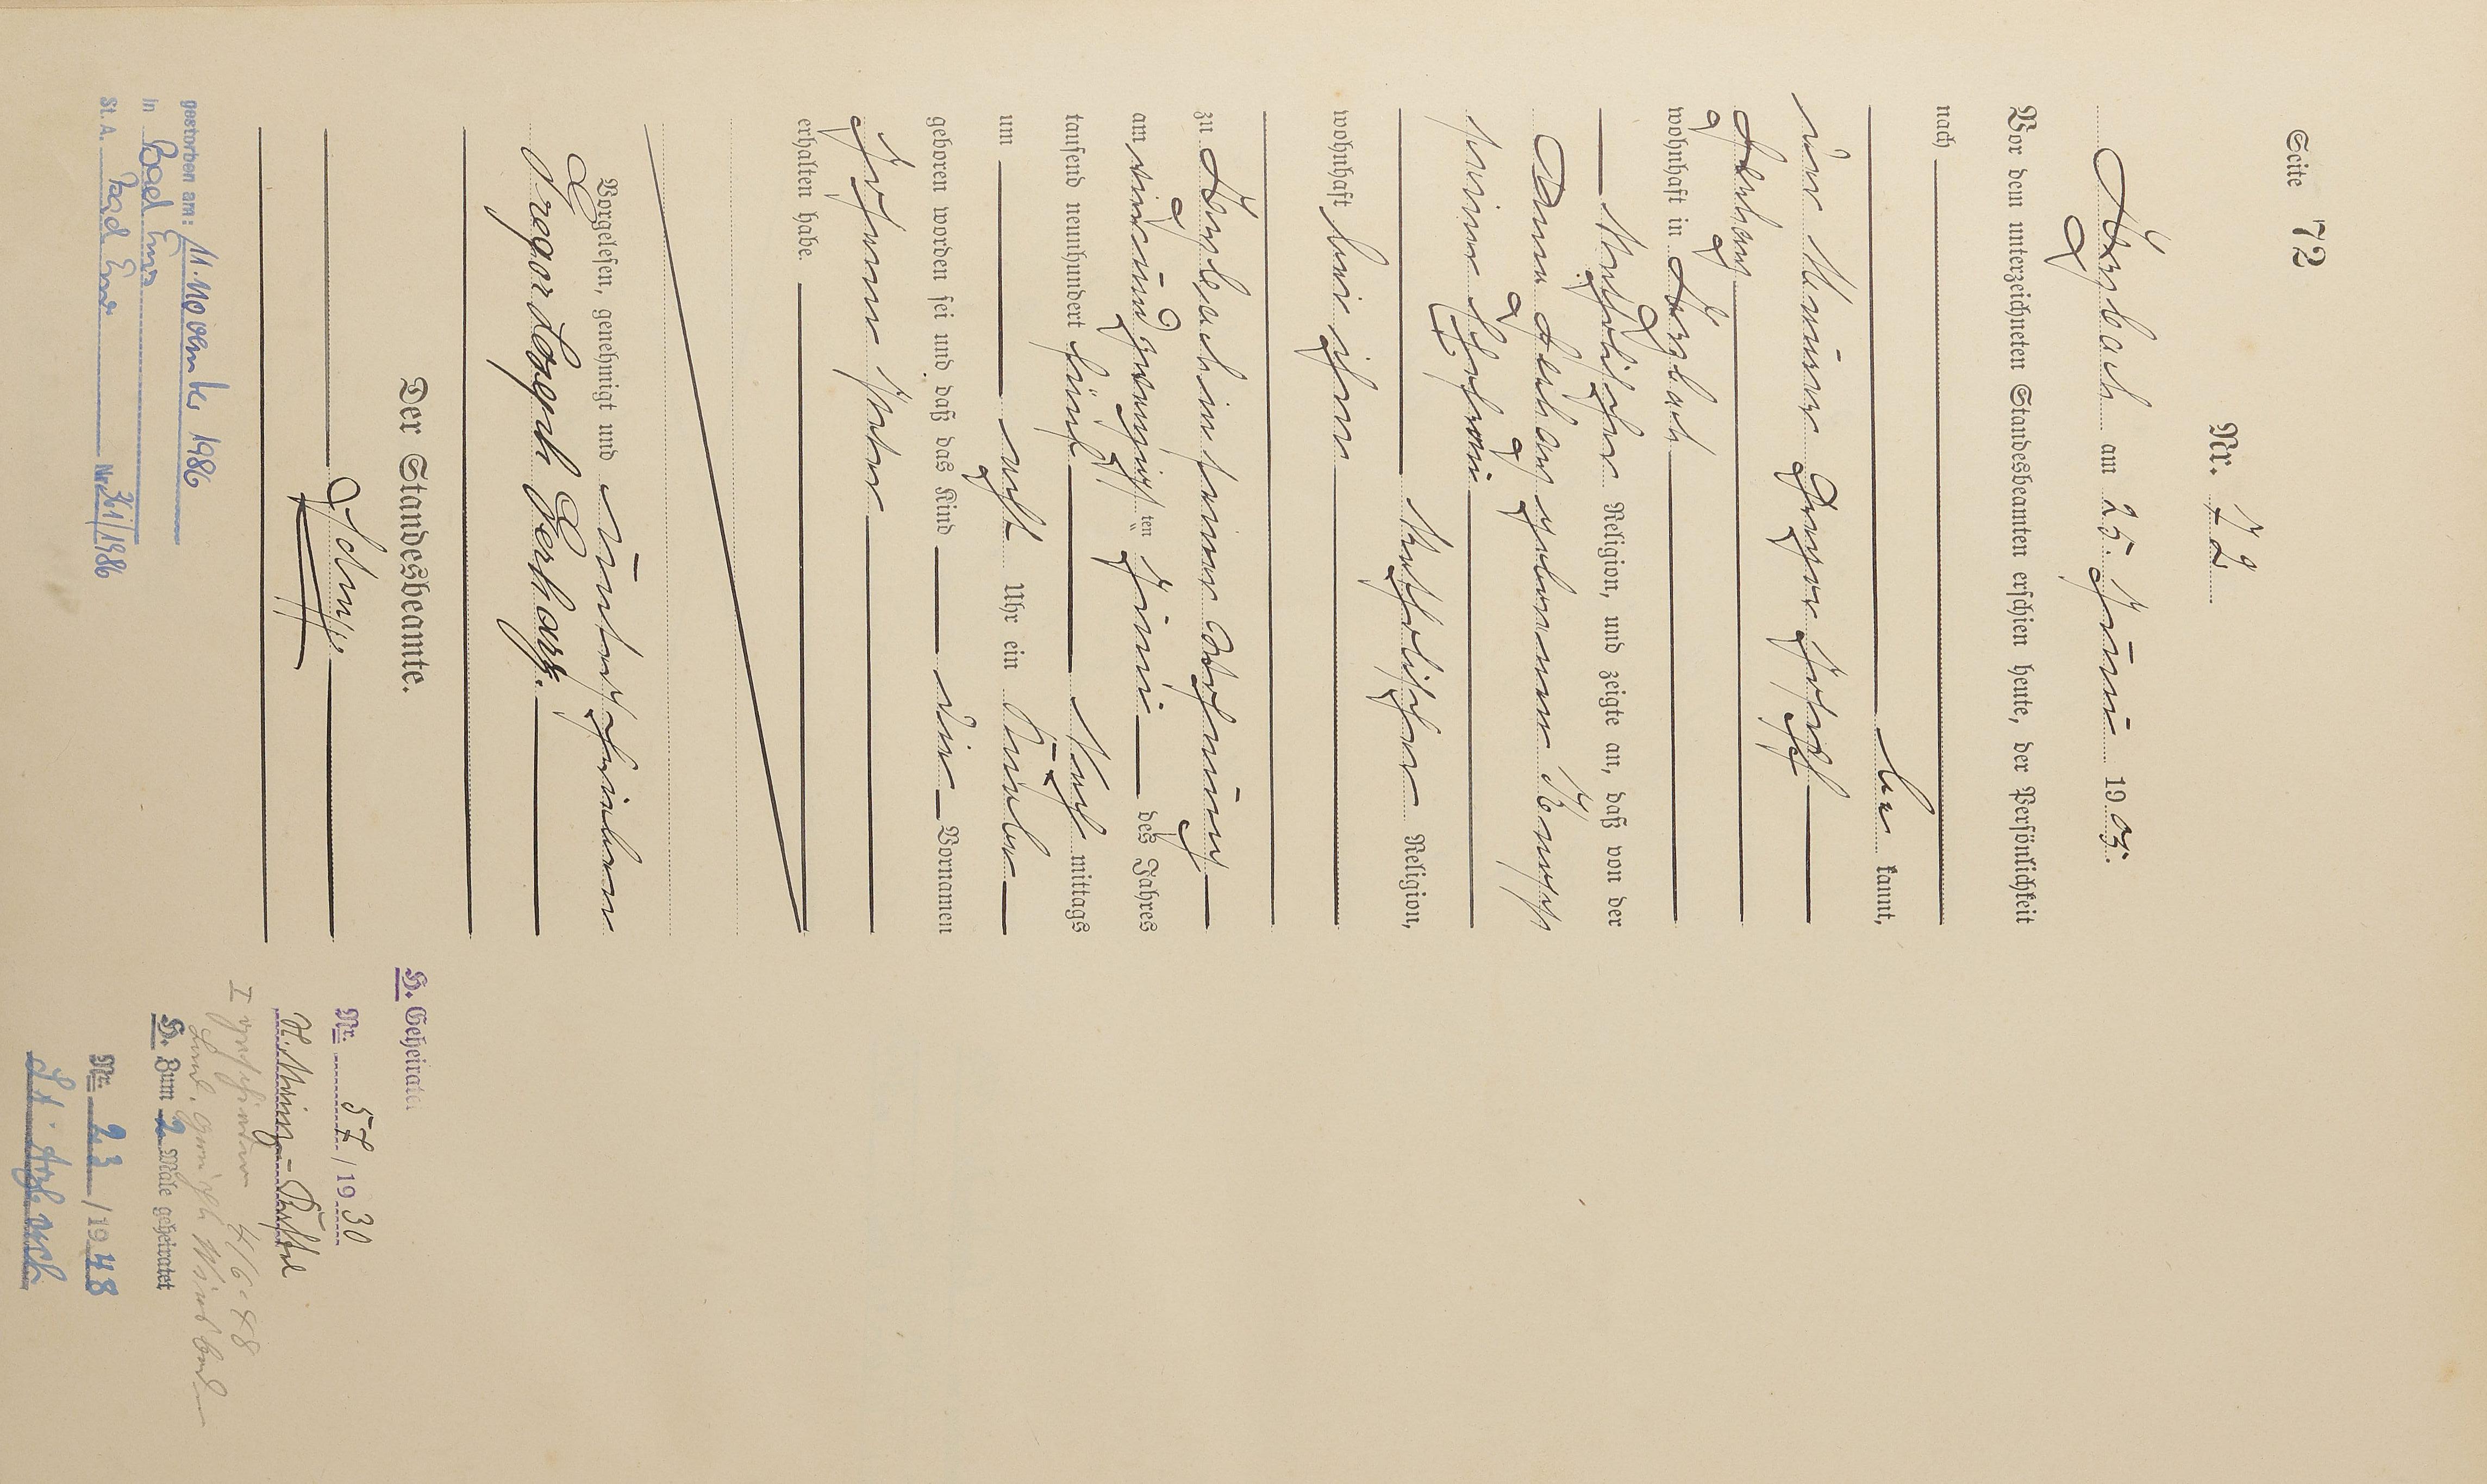 Seite 72
Nr. 72
Arzbach am 25. Juni 1905.
Vor dem unterzeichneten Standesbeamten erschien heute, der Persönlichkeit
nach
be kannt,
der Maurer Gregor Joseph
Gerharz
wohnhaft in Arzbach
katholischer Religion, und zeigte an, daß von der
Anna Gerharz geborenen
seiner Ehefrau
katholischer Religion,
wohnhaft bei ihm
zu Arzbach in seiner Wohnung
am vierundzwanzigsten Juni des Jahres
tausend neunhundert fünf Nach mittags
um acht Uhr ein Knabe
geboren worden sei und daß das Kind die Vornamen
Johann
erhalten habe.
Vorgelesen, genehmigt und unterschrieben
Gregor Joseph Gerharz.
Der Standesbeamte.
gestorben am: 11. November 1986
in Bad Ems
St. A. Bad Ems Nr. 361/1986
H. Geheiratet
Nr. 57 / 19 30
4/6.48
H. Zum 2. Male geheiratet
Nr. 23 / 19 48
St. Arzbach